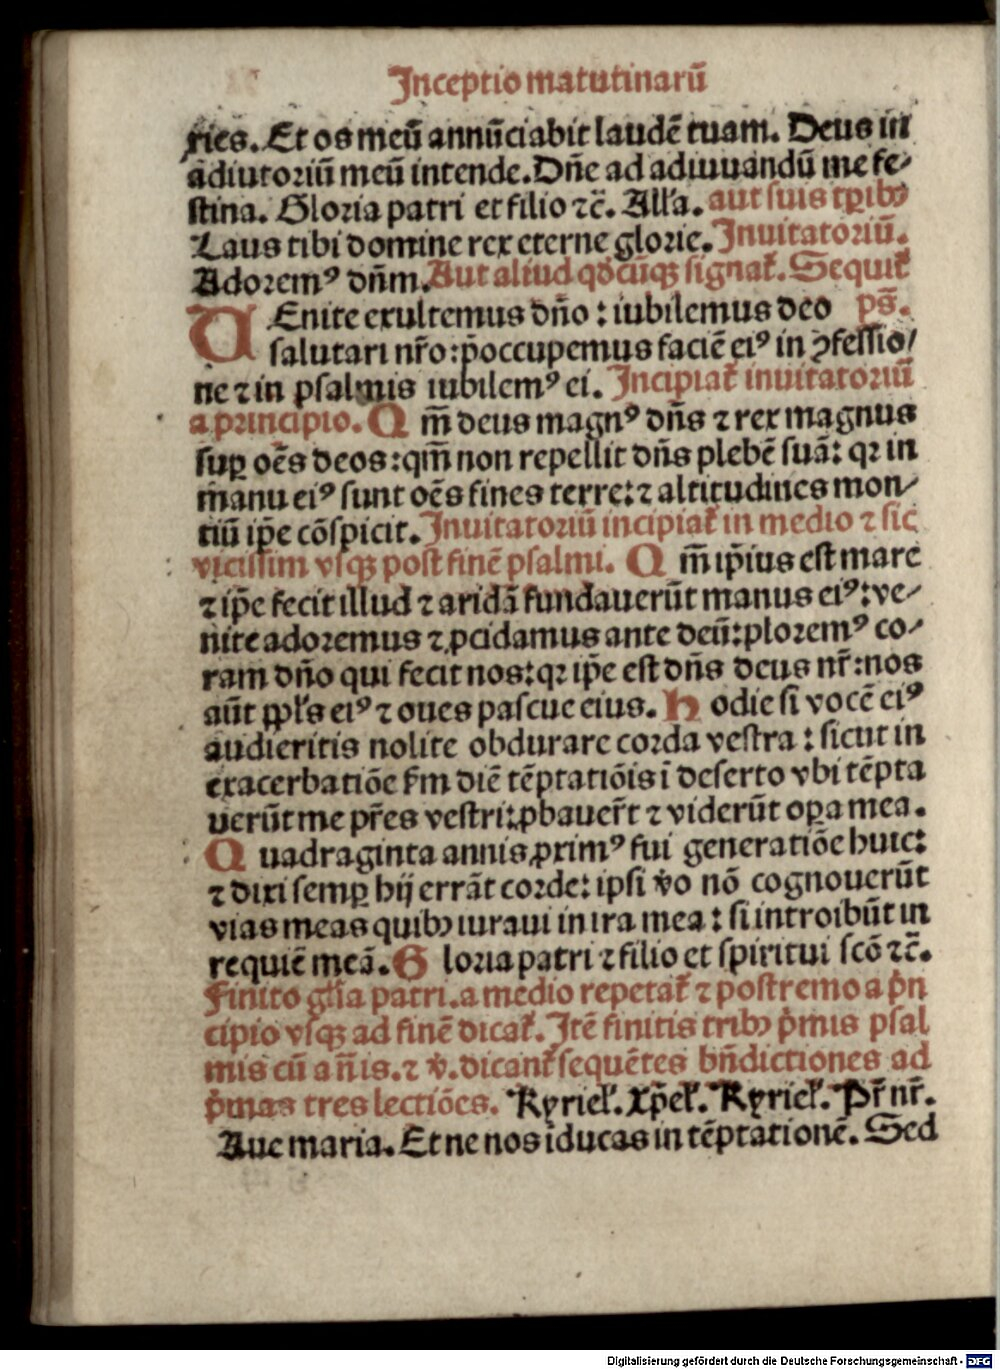 Inceptio matutinarū
ries. Et os meū annūciabit laudē tuam. Deus in
adiutoriū meū intende. Dñe ad adiuuandū me fe-
stina. Gloria patri et filio ⁊c̄. All'a. aut suis tꝑibꝰ
Laus tibi domine rex eterne glorie. Inuitatoriū.
Adoremꝰ dñm. Aut aliud qdcūqꝫ signat᷑. Sequit᷑
VEnite exultemus dño : iubilemus deo ps̄.
salutari nr̄o: p̄occupemus faciē eiꝰ in ꝯfessio/
ne ⁊ in psalmis iubilemꝰ ei. Incipiat᷑ inuitatoriū
a principio. Qm̄ deus magnꝰ dñs ⁊ rex magnus
suꝑ oēs deos: qm̄ non repellit dñs plebē suā: qꝛ in
manu eiꝰ sunt oēs fines terre: ⁊ altitudines mon-
tiū ip̄e cōspicit. Inuitatoriū incipiat᷑ in medio ⁊ sic
vicissim vsqꝫ post finē psalmi. Qm̄ ip̄ius est mare
⁊ ip̄e fecit illud ⁊ aridā fundauerūt manus eiꝰ: ve-
nite adoremus ⁊ ꝓcidamus ante deū: ploremꝰ co-
ram dño qui fecit nos: qꝛ ip̄e est dñs deus nr̄: nos
aūt ppl's eiꝰ ⁊ oues pascue eius. Hodie si vocē eiꝰ
audieritis nolite obdurare corda vestra : sicut in
exacerbatiōe fm diē tēptatiōis ī deserto vbi tēpta
uerūt me pr̄es vestri: ꝓbauer̄t ⁊ viderūt oꝑa mea.
Quadraginta annis ꝓximꝰ fui generatiōe huic:
⁊ dixi semꝑ hij errāt corde: ipsi v̄o nō cognouerūt
vias meas quibꝰ iuraui in ira mea : si introibūt in
requiē meā. Gloria patri ⁊ filio et spiritui scō ⁊c̄.
Finito gl'ia patri. a medio repetat᷑ ⁊ postremo a p̄n
cipio vsqꝫ ad finē dicat᷑. Itē finitis tribꝰ p̄mis psal
mis cū añis. ⁊ v̄. dicant᷑ sequētes bn̄dictiones ad
p̄mas tres lectiōes. Kyriel᷑. Xp̄el᷑. Kyriel᷑. Pr̄ nr̄.
Aue maria. Et ne nos īducas in tēptationē. Sed
Digitalisierung gefördert durch die Deutsche Forschungsgemeinschaft - DFG